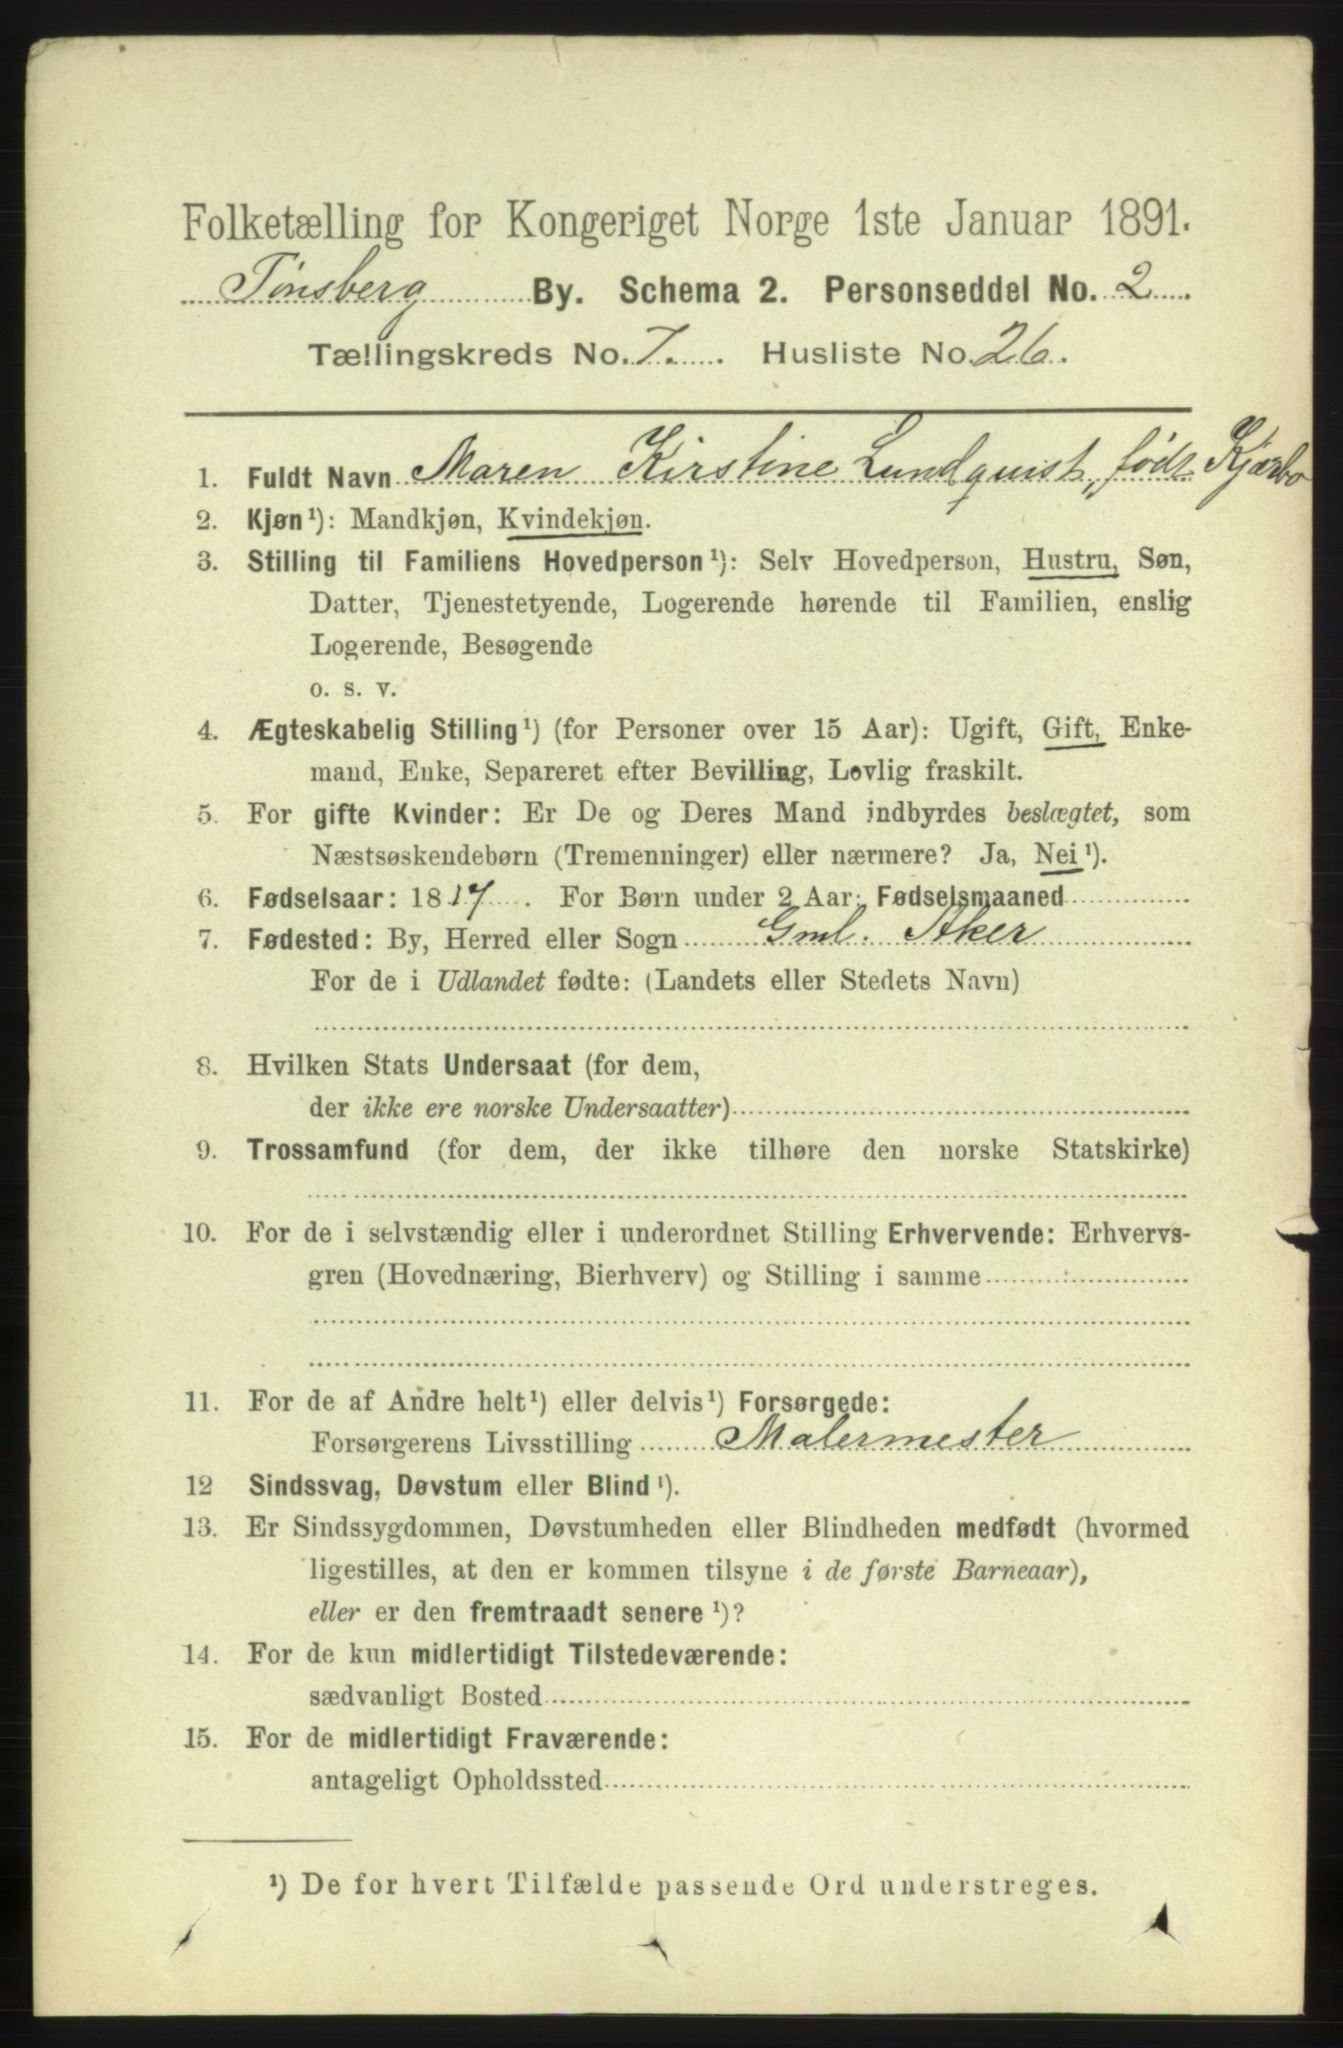 Folketælling for Kongeriget Norge 1ste Januar 1891.
Tønsberg By. Schema 2. Personseddel No. 2
Tællingskreds No. 7. Husliste No. 26.
1. Fuldt Navn Maren Kirstine Lundquist, født Kjærbo
2. Kjøn¹): Mandkjøn, Kvindekjøn.
3. Stilling til Familiens Hovedperson¹): Selv Hovedperson, Hustru, Søn,
Datter, Tjenestetyende, Logerende hørende til Familien, enslig
Logerende, Besøgende
o. s. v.
4. Ægteskabelig Stilling¹) (for Personer over 15 Aar): Ugift, Gift, Enke-
mand, Enke, Separeret efter Bevilling, Lovlig fraskilt.
5. For gifte Kvinder: Er De og Deres Mand indbyrdes beslægtet, som
Næstsøskendebørn (Tremenninger) eller nærmere? Ja, Nei¹).
6. Fødselsaar: 1817. For Børn under 2 Aar: Fødselsmaaned
7. Fødested: By, Herred eller Sogn Gml. Aker
For de i Udlandet fødte: (Landets eller Stedets Navn)
8. Hvilken Stats Undersaat (for dem,
der ikke ere norske Undersaatter)
9. Trossamfund (for dem, der ikke tilhøre den norske Statskirke)
10. For de i selvstændig eller i underordnet Stilling Erhvervende: Erhvervs-
gren (Hovednæring, Bierhverv) og Stilling i samme
11. For de af Andre helt¹) eller delvis¹) Forsørgede:
Forsørgerens Livsstilling Malermester
12 Sindssvag, Døvstum eller Blind¹).
13. Er Sindssygdommen, Døvstumheden eller Blindheden medfødt (hvormed
ligestilles, at den er kommen tilsyne i de første Barneaar),
eller er den fremtraadt senere¹)?
14. For de kun midlertidigt Tilstedeværende:
sædvanligt Bosted
15. For de midlertidigt Fraværende:
antageligt Opholdssted
¹) De for hvert Tilfælde passende Ord understreges.